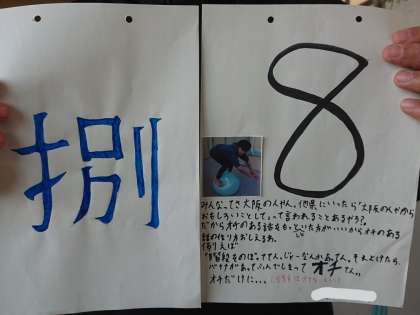 捌
8
みんなってさ大阪の人やん。他県にいったら「大阪の人やから
おもしろいことして」って言われることあるやろ?
だからオチのある話をもっといた方がいいからオチのある
話の作り方おしえるわ。
例えば
「階段をのぼってん。じゃーなんかあってん。それよけたら、
バナナがあってふんでしまって オチてん。」
オチだけに...